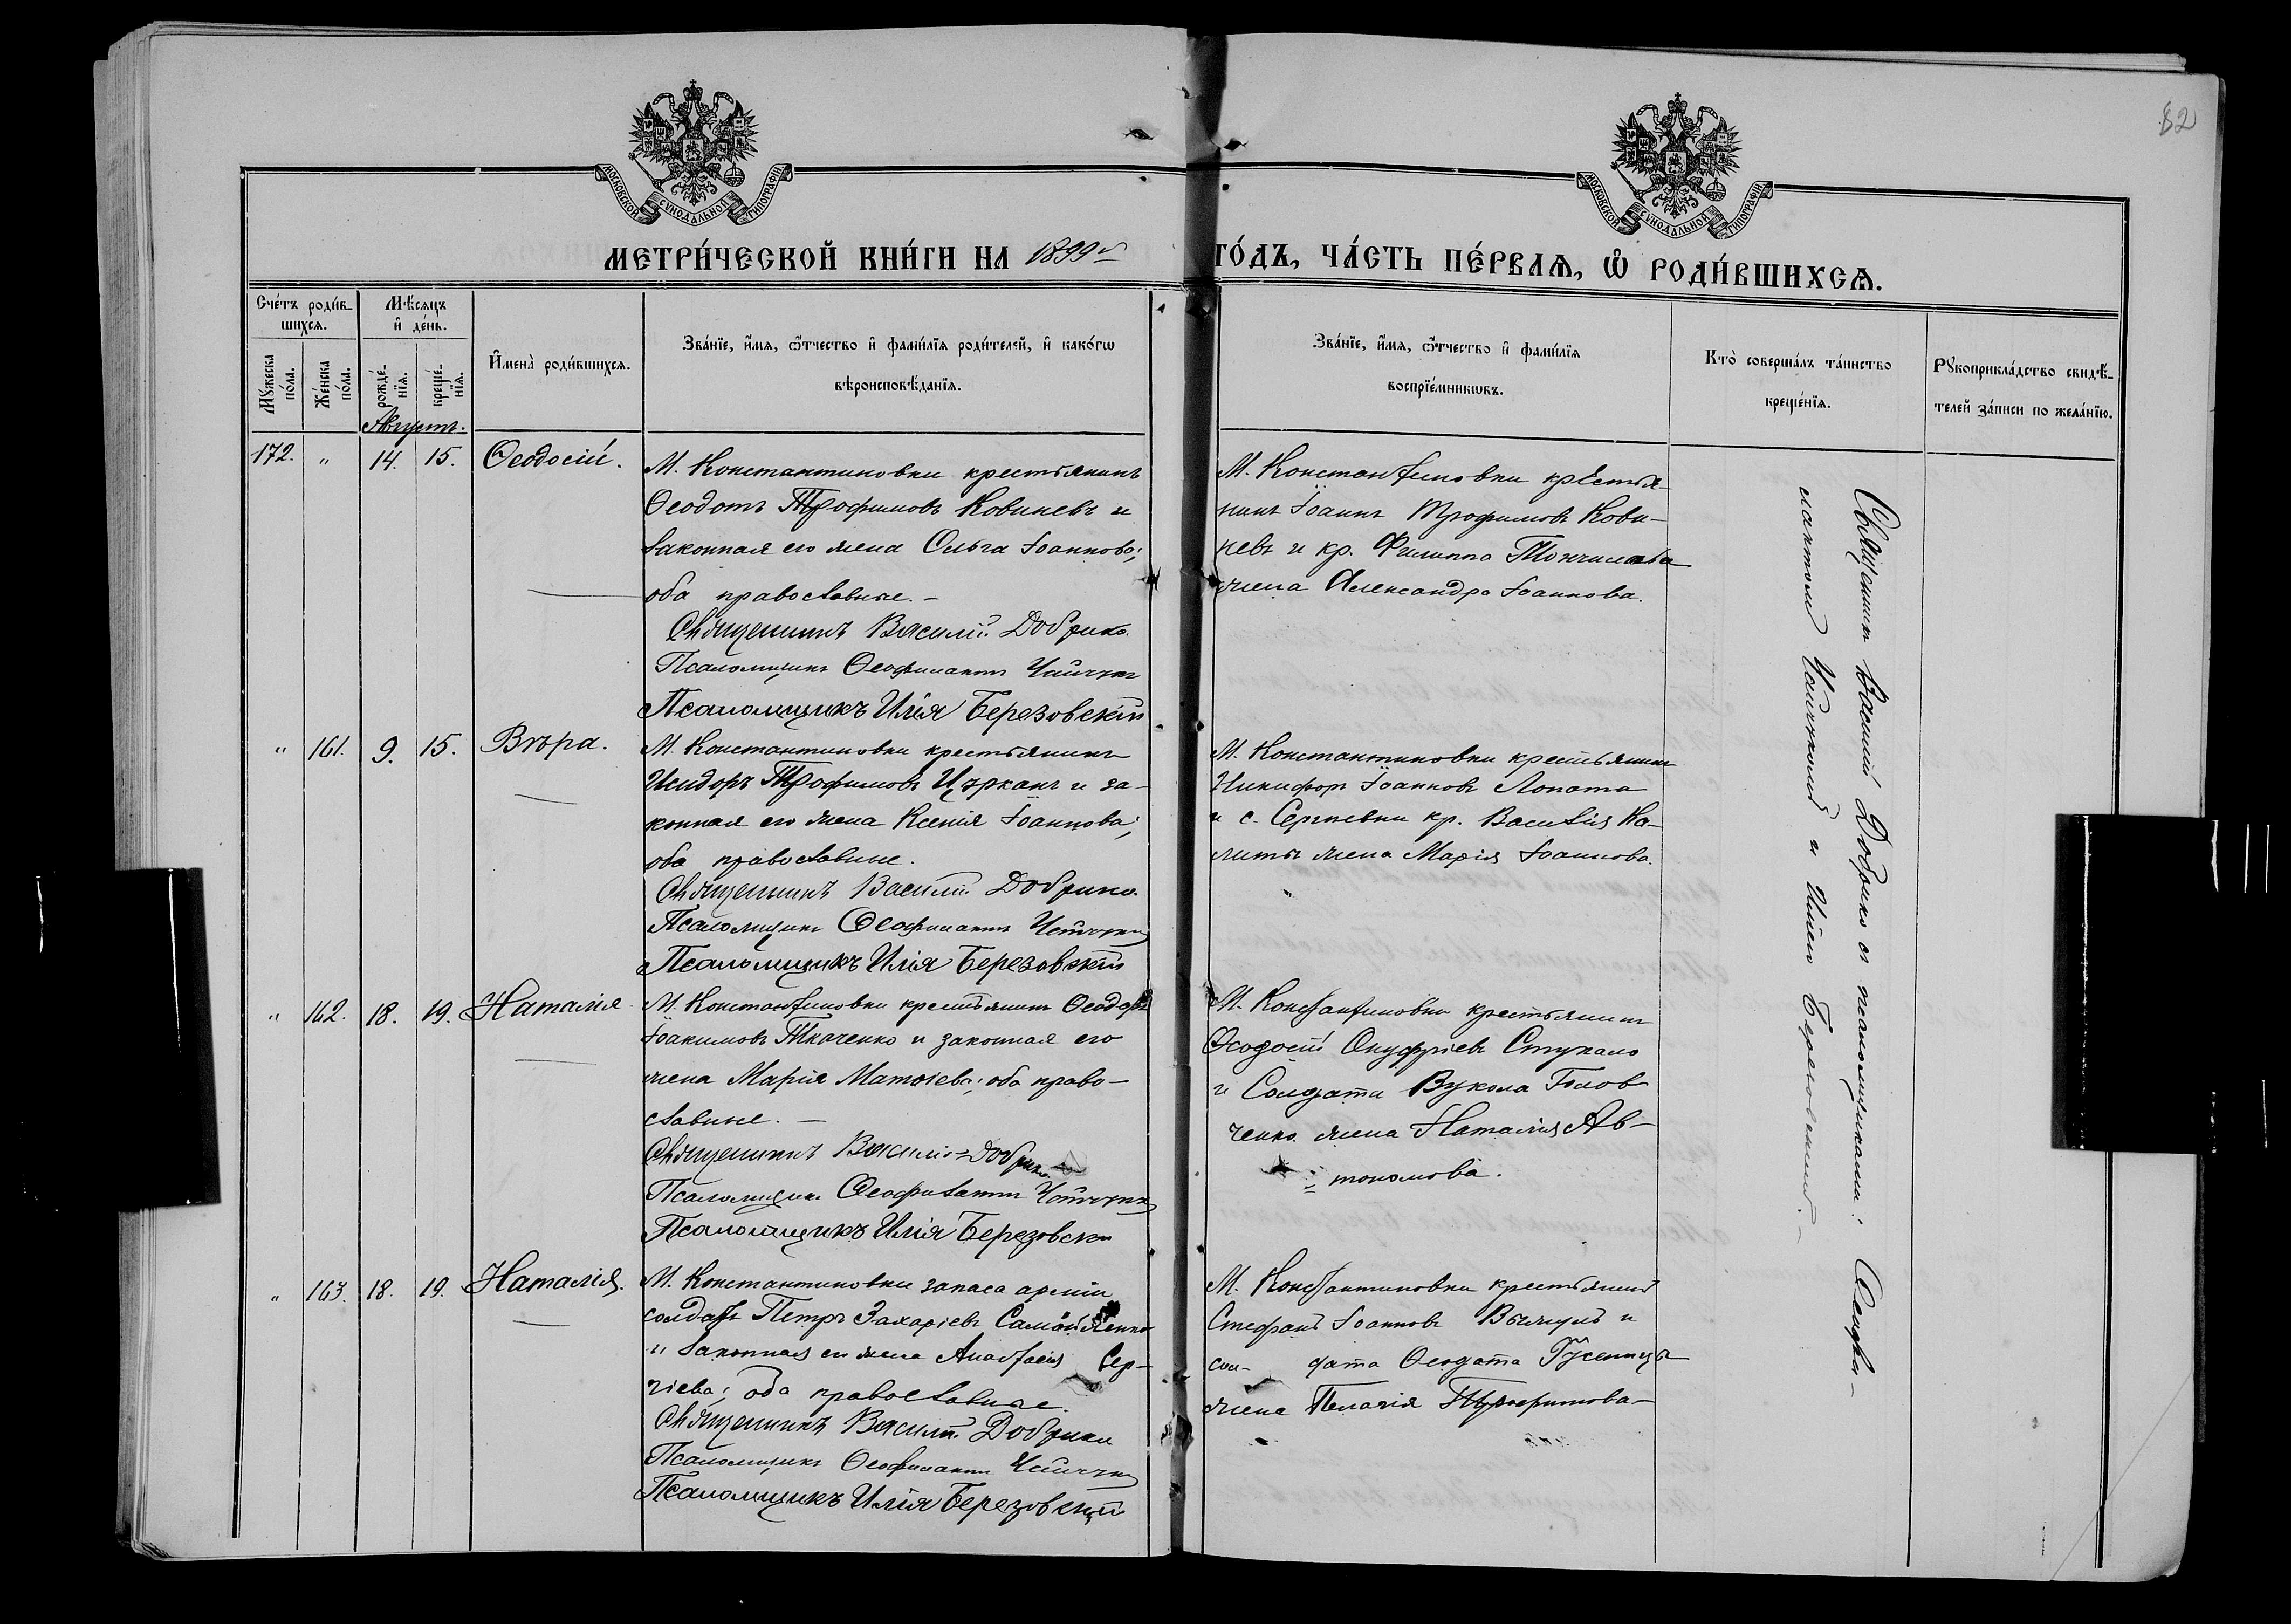 82
МОСКОВСКОЙ СѴНОДАЛЬНОЙ ТИПОГРАФІИ
МОСКОВСКОЙ СѴНОДАЛЬНОЙ ТИПОГРАФІИ
МЕТРИ́ЧЕСКОЙ КНИ́ГИ НА 1899 й
ГО́ДЪ, ЧА́СТЬ ПЕ́РВАѦ, Ѡ҆ РОДИ́ВШИХСѦ.
Сче́тъ роди́в-
шихсѧ.
Мꙋ́жеска по́ла.
Же́нска по́ла.
Мѣ́сѧцъ
и҆ де́нь.
рожде́-
нїѧ.
креще́-
нїѧ.
И҆мена̀ роди́вшихсѧ.
Зва́нїе, и҆́мѧ, ѻ҆́тчество и҆ фами́лїѧ роди́телей, и҆ како́гѡ
вѣроисповѣ́данїѧ.
Зва́нїе, и҆́мѧ, ѻ҆́тчество и҆ фами́лїѧ
воспрїе́мникѡвъ.
Кто̀ соверша́лъ та́инство
креще́нїѧ.
Рꙋкоприкла́дство свидѣ́-
телей за́писи по жела́нїю.
Августъ.
172. " 14. 15. Ѳеодосій.
М. Константиновки крестьянинъ
Ѳеодотъ Трофимовъ Ковиневъ и
законная его жена Ольга Іоаннова;
оба православные. —
Священникъ Василій Добрико.
Псаломщикъ Ѳеофилактъ
Псаломщикъ Илія Березовскій
М. Константиновки крестья-
нинъ Іоаннъ Трофимовъ Кови-
невъ и кр. Филиппа
жена Александра Іоаннова.
" 161. 9. 15. Вѣра.
М. Константиновки крестьянинъ
Исидоръ Трофимовъ Цурканъ и за-
конная его жена Ксенія Іоаннова;
оба православные.
Священникъ Василій Добрико.
Псаломщикъ Ѳеофилактъ
Псаломщикъ Илія Березовскій
М. Константиновки крестьянинъ
Никифоръ Іоанновъ Лопата
и с. Сергѣевки кр. Василія Ка-
литы жена Марія Іоаннова.
" 162. 18. 19. Наталія
М. Константиновки крестьянинъ Ѳеодоръ
Іоакимовъ Ткаченко и законная его
жена Марія Матѳіева; оба право-
славные. —
Священникъ Василій Добрико
Псаломщикъ Ѳеофилактъ
Псаломщикъ Илія Березовскій
М. Константиновки крестьянинъ
Ѳеодосій Онуфріевъ Стукало
и Солдата Вукола Голов
ченко жена Наталія Ав-
тономова.
" 163. 18. 19. Наталія.
М. Константиновки запаса арміи
солдатъ Петръ Захаріевъ Самойленко
и законная его жена Анастасія Сер-
гіева; оба православные.
Священникъ Василій Добрико
Псаломщикъ Ѳеофилактъ
Псаломщикъ Илія Березовскій
М. Константиновки крестьянинъ
Стефанъ Іоанновъ и
сол- дата Ѳеодота Гусеницы
жена Пелагія
Священникъ Василій Добрико съ псаломщиками: Ѳеофи-
лактомъ и Иліею Березовскимъ. —